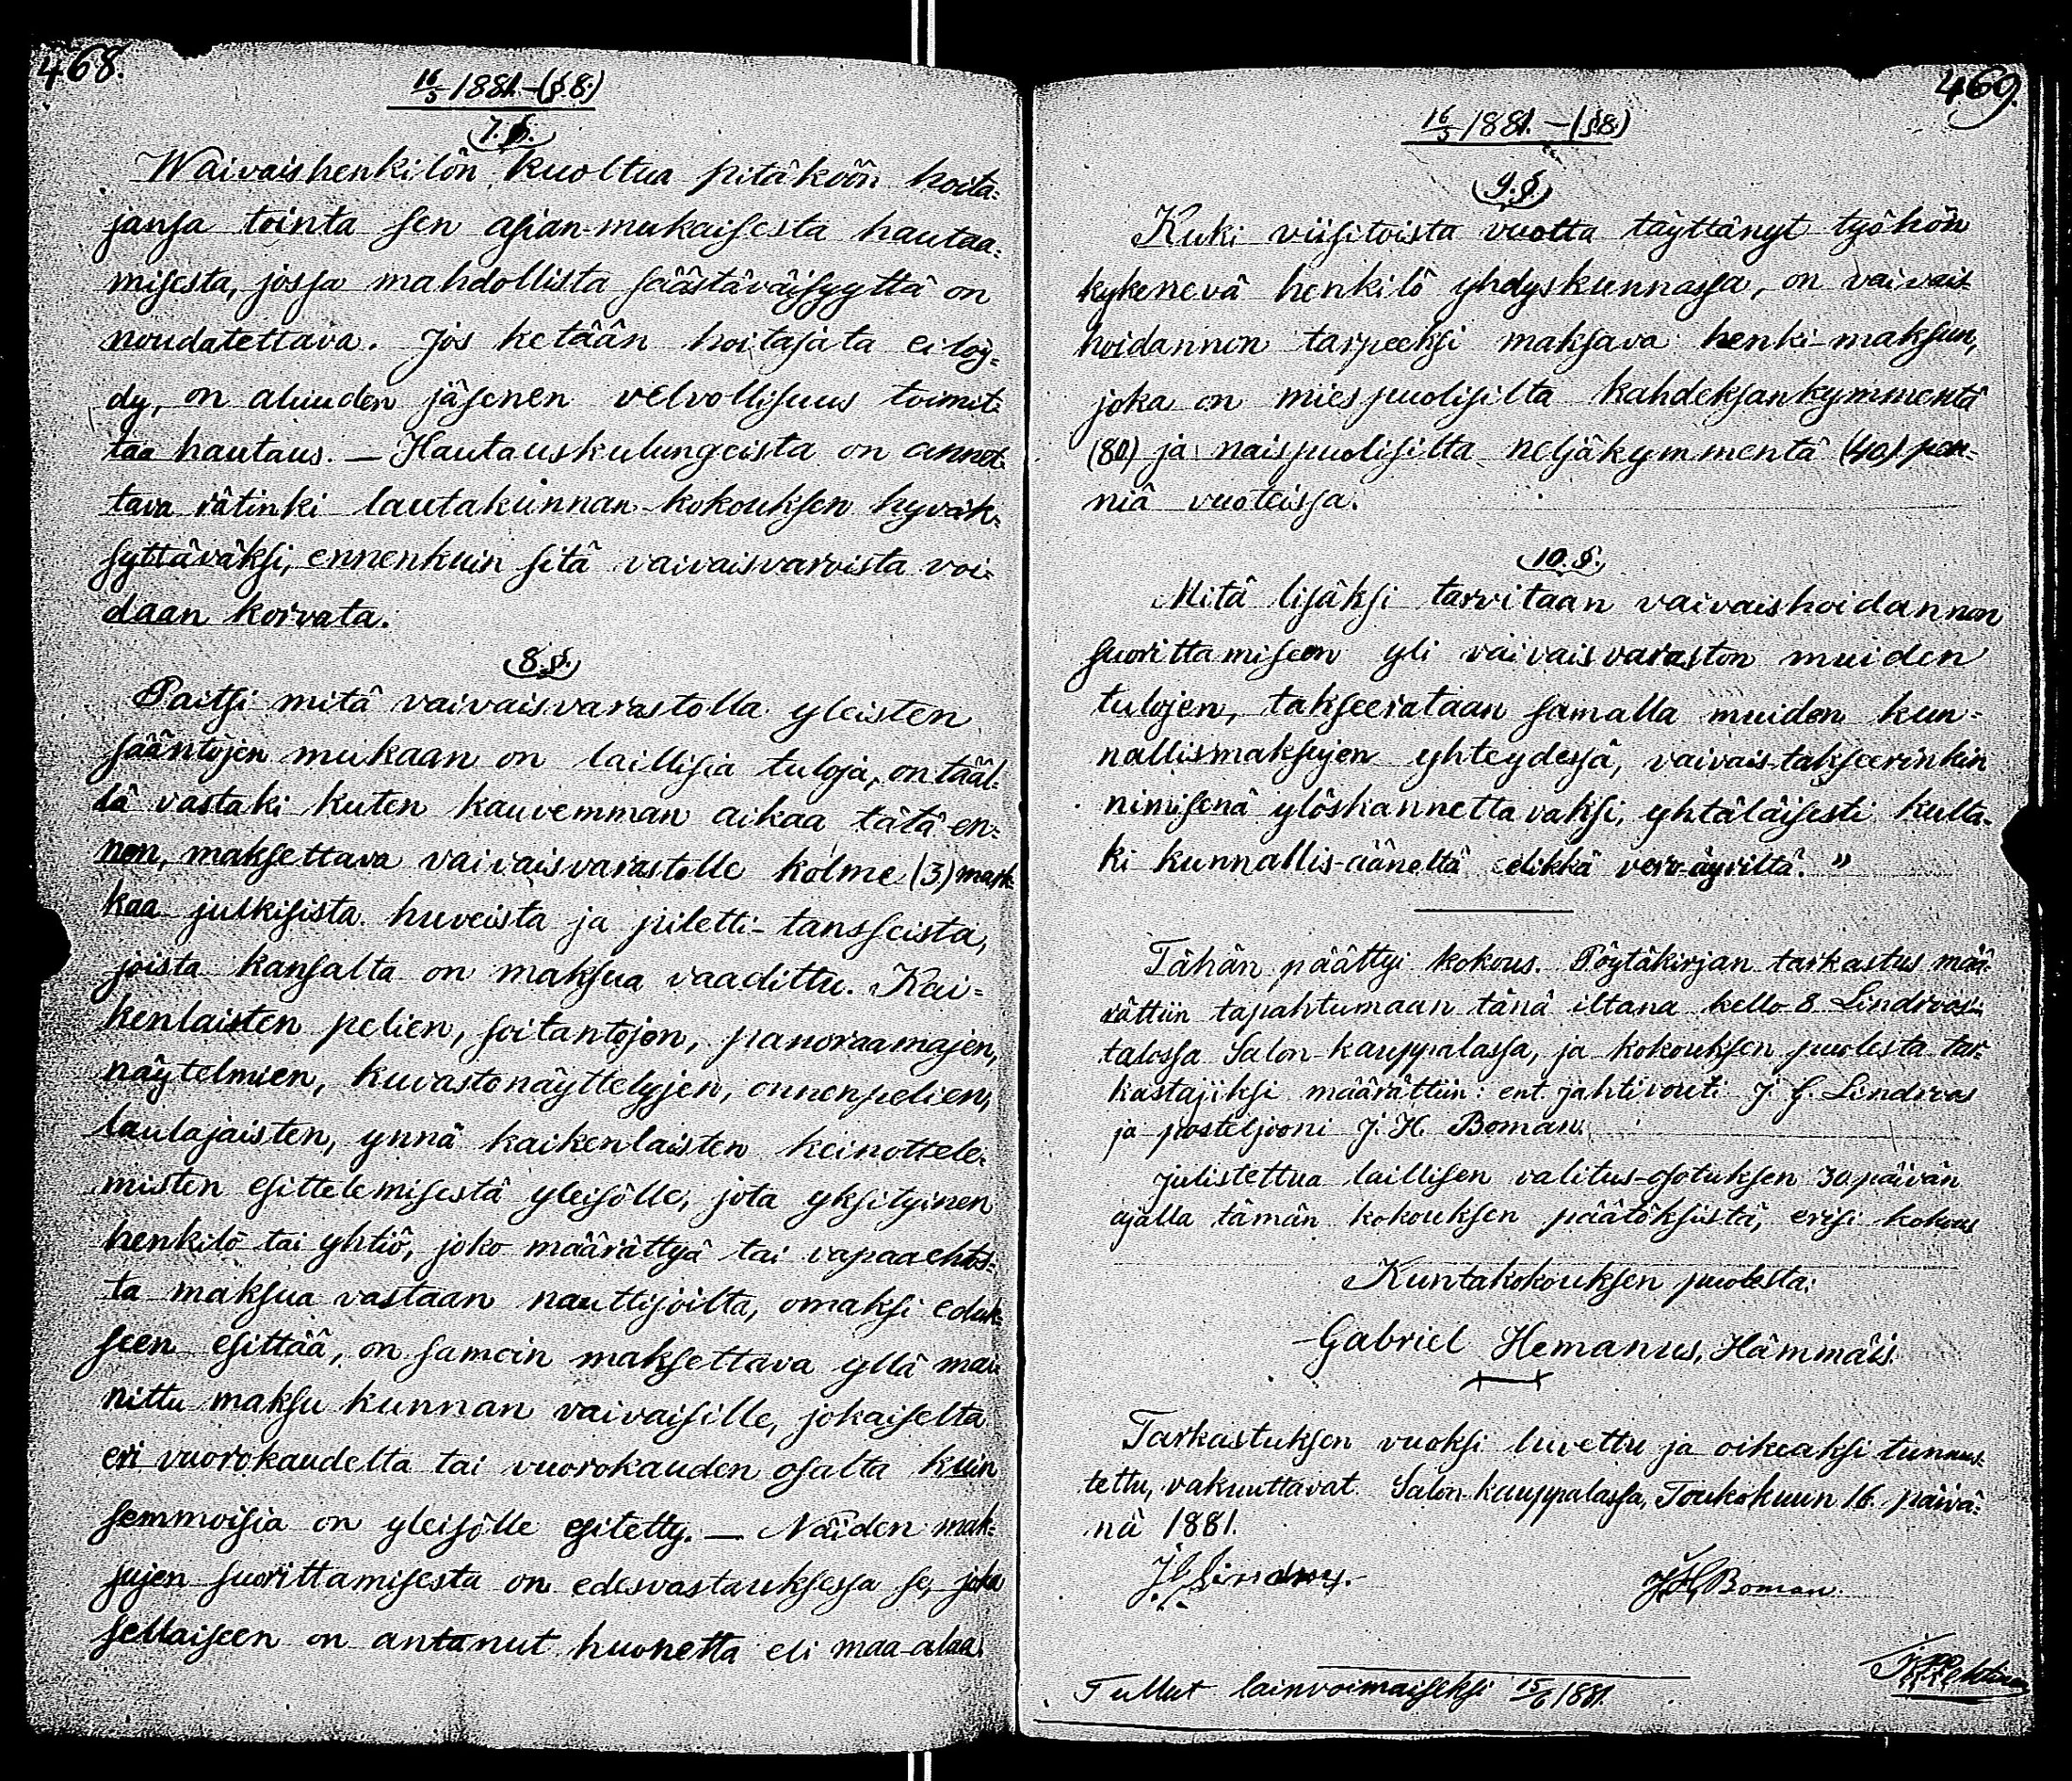 468.
16/5 1881. - (§.8.)
7. §.
Waivaishenkilön kuoltua pitäköön hoita-
jansa tointa sen asian-mukaisesta hautaa-
misesta, jossa mahdollista säästäväisyyttä on
noudatettava. Jos ketään hoitajata ei löy-
dy, on aluuden jäsenen velvollisuus toimit-
taa hautaus. — Hautauskulungeista on annet-
tava rätinki lautakunnan kokouksen hyväk-
syttäväksi, ennenkuin sitä vaivaisvaroista voi-
daan korvata.
8. §.
Paitsi mitä vaivaisvarastolla yleisten
sääntöjen mukaan on laillisia tuloja, on tääl-
lä vastaki kuten kauvemman aikaa tätä en-
nen, maksettava vaivaisvarastolle kolme (3) mark-
kaa julkisista huveista ja piletti-tansseista,
joista kansalta on maksua vaadittu. Kai-
kenlaisten pelien, soitantojen, panoraamajen,
näytelmien, kuvastonäyttelyjen, onnenpelien,
laulajaisten, ynnä kaikenlaisten keinottele-
misten esittelemisestä yleisölle, jota yksityinen
henkilö tai yhtiö, joko määrättyä tai vapaaehtos-
ta maksua vastaan nauttijoilta, omaksi eduk-
seen esittää, on samoin maksettava yllä mai-
nittu maksu kunnan vaivaisille, jokaiselta
eri vuorokaudelta tai vuorokauden osalta kuin
semmoisia on yleisölle esitetty. — Näiden mak-
sujen suorittamisesta on edesvastauksessa se, joka
sellaiseen on antanut huonetta eli maa-alaa.
469.
16/5 1881. - (§8.)
9. §.
Kuki viisitoista vuotta täyttänyt työhön
kykenevä henkilö yhdyskunnassa, on vaivais-
hoidannon tarpeeksi maksava henki-maksun,
joka on miespuolisilta kahdeksankymmentä
(80) ja naispuolisilta neljäkymmentä (40) pen-
niä vuoteissa.
10. §.
Mitä lisäksi tarvitaan vaivaishoidannon
suorittamiseen yli vaivaisvaraston muiden
tulojen, takseerataan samalla muiden kun-
nallismaksujen yhteydessä, vaivais-takseerinkin
nimisenä ylöskannettavaksi, yhtäläisesti kulta-
ki kunnallis-ääneltä elikkä vero-äyriltä."
Tähän päättyi kokous. Pöytäkirjan tarkastus mää-
rättiin tapahtumaan tänä iltana kello 8 Lindroos'in
talossa Salon kauppalassa, ja kokouksen puolesta tar-
kastajiksi määrättiin: ent. jahtivouti J. G. Lindroos
ja posteljooni J. H. Boman.
Julistettua laillisen valitus-osotuksen 30 päivän
ajalla tämän kokouksen päätöksistä, erisi kokous
Kuntakokouksen puolesta:
Gabriel Hemanus, Hämmäis.
Tarkastuksen vuoksi luvettu ja oikeaksi tunnus-
tettu, vakuuttavat. Salon kauppalassa, Toukokuun 16. päivä-
nä 1881.
J G Lindroos. J H Boman.
Tullut lainvoimaiseksi 15/6 1881.